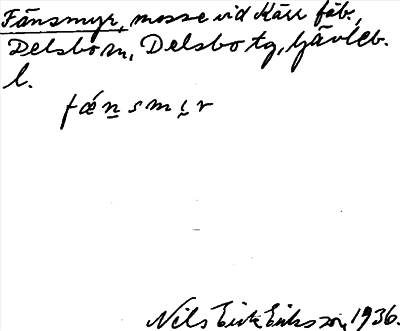 Fänsmyr, mosse vid Kärr fäb.,
Delsbo sn, Delsbo tg, Gävleb.
l.
fǽn̲smı̣r
Nils Erik Eriksson, 1936.